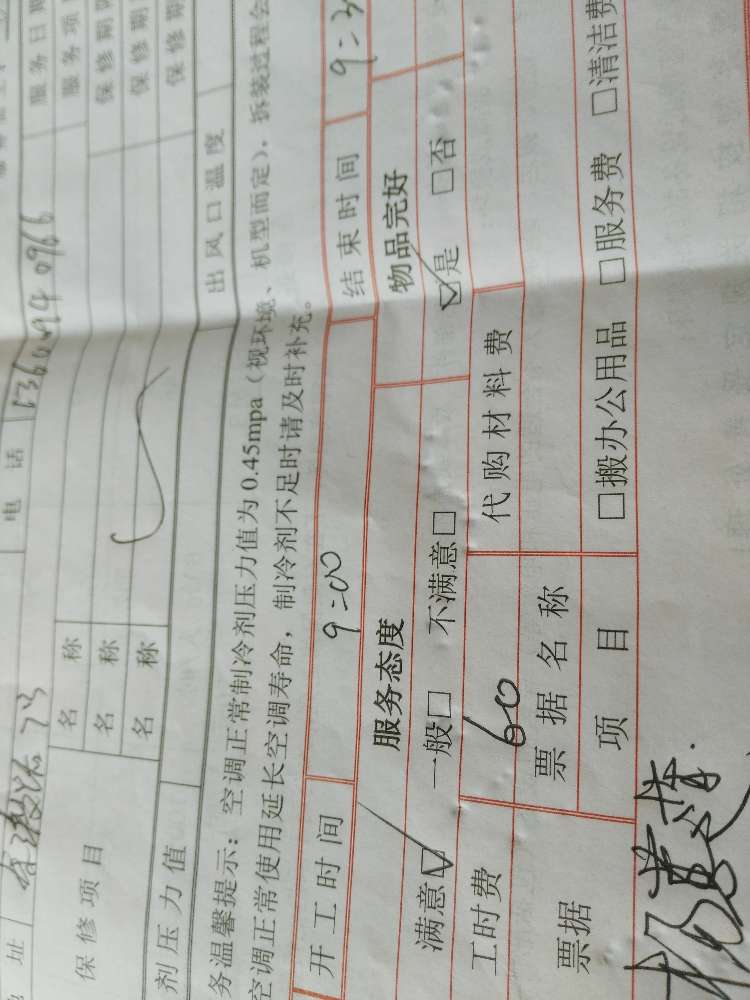 服务日期
服务项
电话
保修项目
名称 保修期
名称 保修期
名称 保修期
剂压力值 出风口温度
务温馨提示：空调正常制冷剂压力值为0.45mpa（视环境、机型而定），拆装过程会
空调正常使用延长空调寿命，制冷剂不足时请及时补充。
开工时间 9:00 结束时间 9:3
服务态度 物品完好
满意☑ 一般□ 不满意□ ☑是 □否
工时费 60 代购材料费
票据 票据名称
项目 □搬办公用品 □服务费 □清洁费